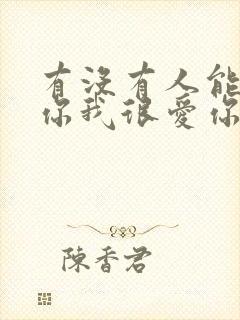 有没有人能
你我很爱你
陳香君